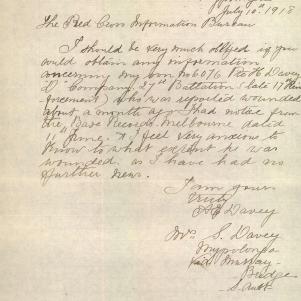 July 10th 1918
The Red Cross Information Bureau
I should be very much obliged if you
could obtain any information
concerning my son No 6076 Pte H Davey
"D" Company 27th Battalion (late 17th Rein
forcement) who was reported wounded
about a month ago. I had notice from
the Base Records Melbourne dated
11th June. & I feel very anxious to
know to what extent he was
wounded. as I have had no
further news.
I am yours
truly
S Davey
Mrs S. Davey
Mypolonga
Murray
Bridge
S. Aust